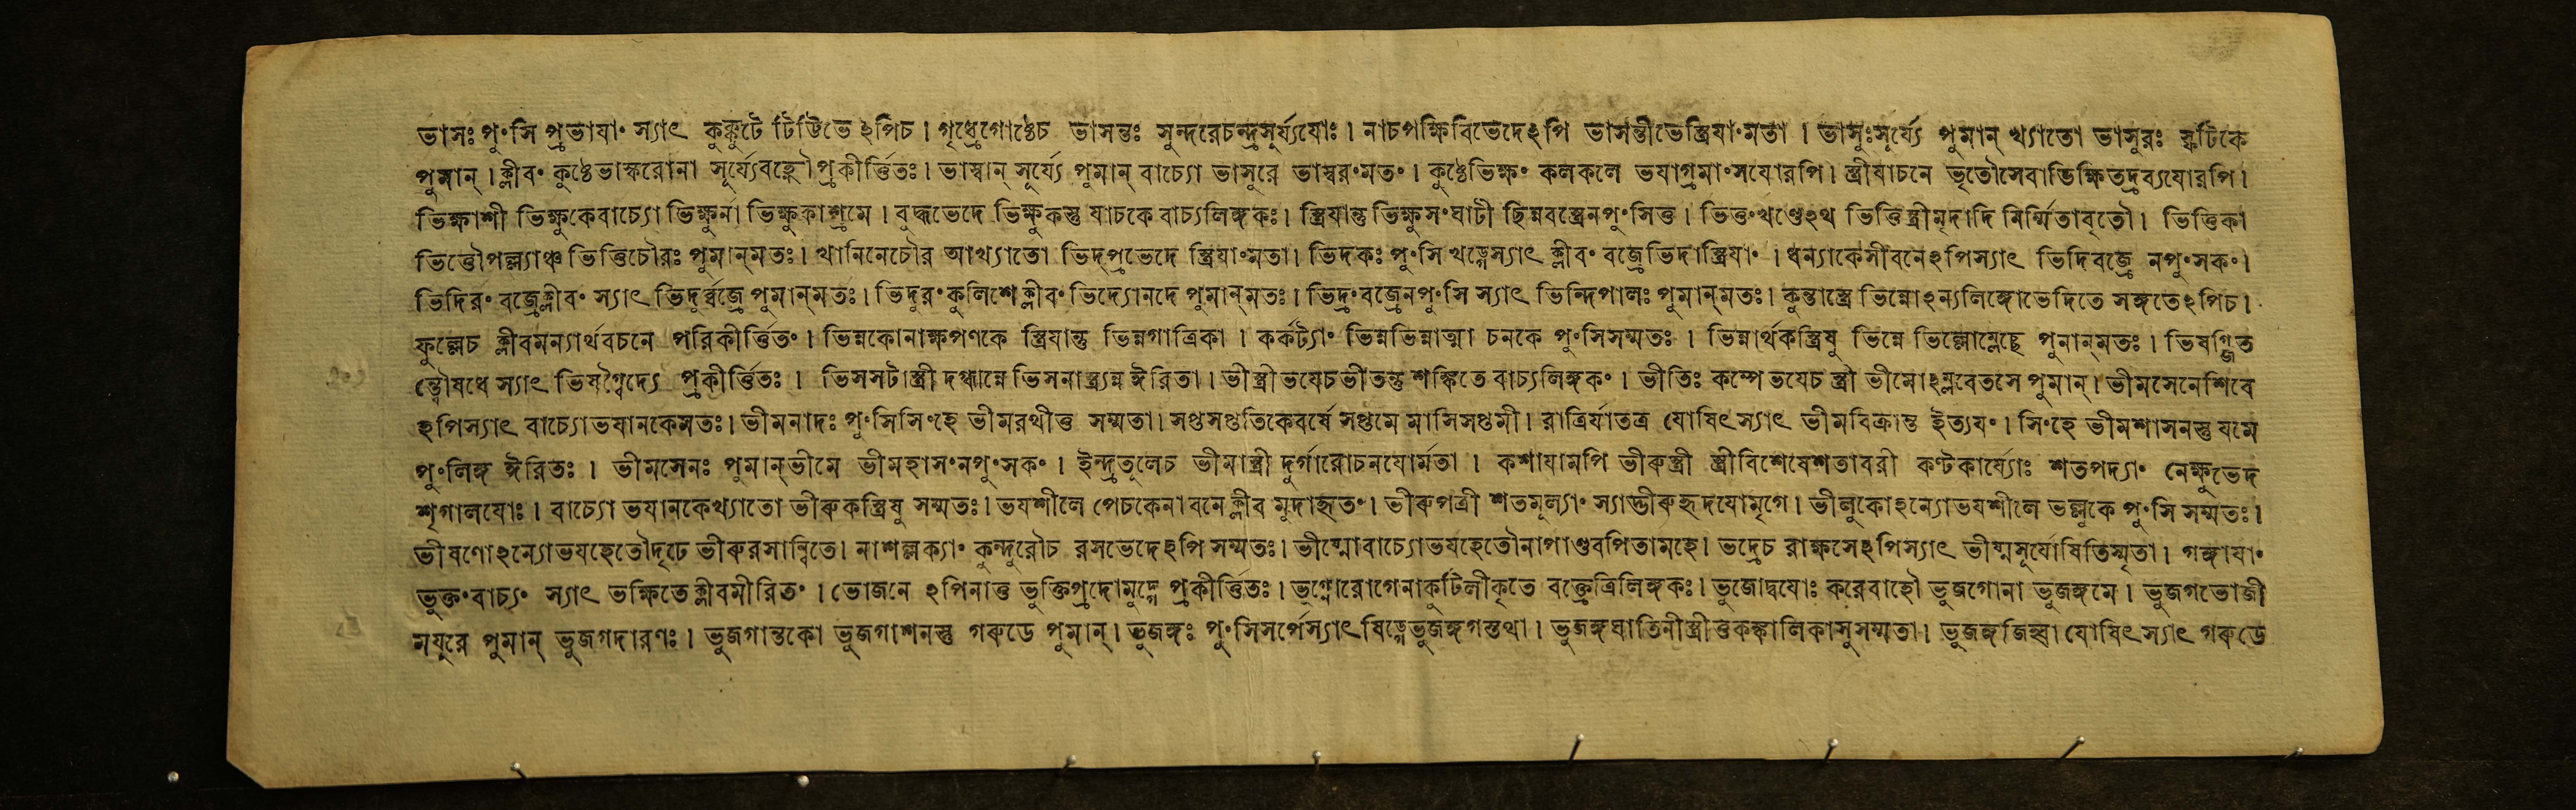 ভাসঃ পুংসি প্রভাযাং স্যাৎ কুক্কুটে টিট্টিভে ঽপিচ। গৃধ্রেগোষ্ঠেচ ভাসন্তঃ সুন্দরেচন্দ্রসূর্য্যযোঃ। নাচপক্ষিবিভেদেঽপি ভাসন্তীভেস্ত্রিযাংমতা। ভাসুঃসূর্য্যে পুমান্ খ্যাতো ভাসুরঃ স্ফটিকে
পুমান্। ক্লীবং কুষ্ঠেভাস্করোনা সূর্য্যেবহ্নৌপ্রকীর্ত্তিতঃ। ভাস্বান্ সূর্য্যে পুমান্ বাচ্যো ভাসুরে ভাস্বরংমতং। কুষ্ঠেভিক্ষং কলকলে ভযাগ্রমাংসযোরপি। স্ত্রীযাচনে ভৃতৌসেবাভিক্ষিতদ্রব্যযোরপি।
ভিক্ষাশী ভিক্ষুকেবাচ্যো ভিক্ষুর্না ভিক্ষুকাশ্রমে। বুদ্ধভেদে ভিক্ষুকস্তু যাচকে বাচ্যলিঙ্গকঃ। স্ত্রিযান্তু ভিক্ষুসংঘাটী ছিন্নবস্ত্রেনপুংসিতু। ভিত্তংখণ্ডেঽথ ভিত্তিস্ত্রীমৃদাদি নির্ম্মিতাবৃতৌ। ভিত্তিকা
ভিত্তৌপল্ল্যাঞ্চ ভিত্তিচৌরঃ পুমান্মতঃ। খানিনেচৌর আখ্যাতো ভিদ্প্রভেদে স্ত্রিযাংমতা। ভিদকঃ পুংসি খড়্গেস্যাৎ ক্লীবং বজ্রেভিদাস্ত্রিযাং। ধন্যাকেসীবনেঽপিস্যাৎ ভিদিবজ্রে নপুংসকং।
ভিদিরং বজ্রেক্লীবং স্যাৎ ভিদুর্ব্বজ্রে পুমান্মতঃ। ভিদুরং কুলিশেক্লীবং ভিদ্যোনদে পুমান্মতঃ। ভিদ্রং বজ্রেনপুংসি স্যাৎ ভিন্দিপালঃ পুমান্মতঃ। কুন্তাস্ত্রে ভিন্নোঽন্যলিঙ্গোভেদিতে সঙ্গতেঽপিচ।
ফুল্লেচ ক্লীবমন্যার্থবচনে পরিকীর্ত্তিতং। ভিন্নকোনাক্ষপণকে স্ত্রিযান্তু ভিন্নগাত্রিকা। কর্কট্যাং ভিন্নভিন্নাত্মা চনকে পুংসিসম্মতঃ। ভিন্নার্থকস্ত্রিষু ভিন্নে ভিল্লোম্লেচ্ছে পুমান্মতঃ। ভিষগ্জিত
ন্ত্বৌষধে স্যাৎ ভিষগ্বৈদ্যে প্রকীর্ত্তিতঃ। ভিসসটাস্ত্রী দগ্ধান্নে ভিসনাস্ত্র্যন্ন ঈরিতা। ভীস্ত্রীভযেচভীতন্তু শঙ্কিতে বাচ্যলিঙ্গকং। ভীতিঃ কম্পে ভযেচ স্ত্রী ভীমোঽম্লবেতসে পুমান্। ভীমসেনেশিবে
ঽপিস্যাৎ বাচ্যোভযানকেমতঃ। ভীমনাদঃ পুংসিসিংহে ভীমরথীতু সম্মতা। সপ্তসপ্ততিকেবর্ষে সপ্তমে মাসিসপ্তমী। রাত্রির্যাতত্র যোষিৎস্যাৎ ভীমবিক্রান্ত ইত্যযং। সিংহে ভীমশাসনস্তু যমে
পুংলিঙ্গ ঈরিতঃ। ভীমসেনঃ পুমান্ভীমে ভীমহাসংনপুংসকং। ইন্দ্রতূলেচ ভীমাস্ত্রী দুর্গারোচনযোর্মতা। কশাযামপি ভীরুস্ত্রী স্ত্রীবিশেষেশতাবরী কণ্টকার্য্যোঃ শতপদ্যাং নেক্ষুভেদ
শৃগালযোঃ। বাচ্যো ভযানকেখ্যাতো ভীরুকস্ত্রিষু সম্মতঃ। ভযশীলে পেচকেনাবনেক্লীব মুদাহৃতং। ভীরুপত্রী শতমূল্যাং স্যাদ্ভীরুহৃদযোমৃগে। ভীলুকোঽন্যোভযশীলে ভল্লূকে পুংসি সম্মতঃ।
ভীষণোঽন্যোভযহেতৌদৃঢে ভীরুরসান্বিতে। নাশল্লক্যাং কুন্দুরৌচ রসভেদেঽপি সম্মতঃ। ভীষ্মোবাচ্যোভযহেতৌনাপাণ্ডবপিতামহে। ভদ্রেচ রাক্ষসেঽপিস্যাৎ ভীষ্মসূর্যোষিতিস্মৃতা। গঙ্গাযাং
ভুক্তংবাচ্যং স্যাৎ ভক্ষিতেক্লীবমীরিতং। ভোজনে ঽপিনাতু ভুক্তিপ্রদোমুদ্গে প্রকীর্ত্তিতঃ। ভুগ্নোরোগেনাকুটিলীকৃতে বক্রেত্রিলিঙ্গকঃ। ভুজোদ্বযোঃ করেবাহৌ ভুজগোনা ভুজঙ্গমে। ভুজগভোজী
মযূরে পুমান্ ভুজগদারণঃ। ভুজগান্তকো ভুজগাশনস্তু গরুডে পুমান্। ভুজঙ্গঃ পুংসিসর্পেস্যাৎষিড়্গেভুজঙ্গগস্তথা। ভুজঙ্গঘাতিনীস্ত্রীতুকঙ্কালিকাসুসম্মতা। ভুজঙ্গজিহ্বা যোষিৎস্যাৎ গরুডে